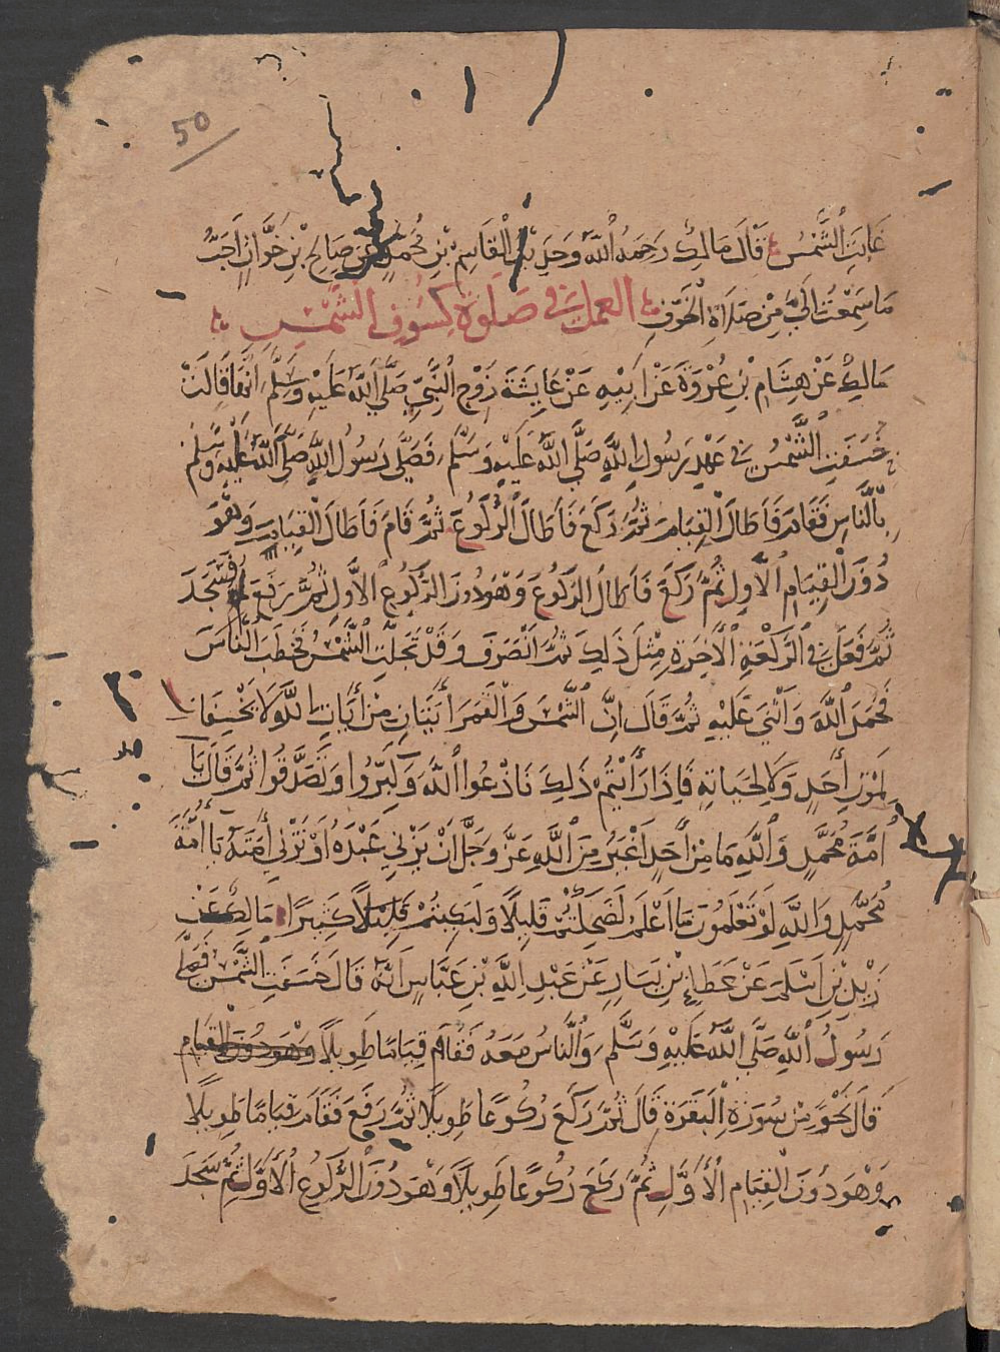 50
غَابَتِ الشَّمْسُ قَالَ مَالِكٌ رَحِمَهُ اللَّهُ وَحَدِيثُ الْقَاسِمِ بْنِ مُحَمَّدٍ عَنْ صَالِحِ بْنِ خَوَّاتٍ اَحَبُّ
مَا سَمِعْتُ اِلَيَّ مِنْ صَلَاةِ الْخَوْفِ الْعمل فِي صَلَوةِ كُسُوفِ الشَّمْسِ
مَالِكٌ عَنْ هِشَامِ بْنِ عُرْوَةَ عَنْ اَبِيهِ عَنْ عَايِشَةَ زَوْجِ النَّبِيِّ صَلَّى اللَّهُ عَلَيْهِ وَسَلَّمَ اَنَّهَا قَالَتْ
خَسَفَتِ الشَّمْسُ فِي عَهْدِ رَسُولِ اللَّهِ صَلَّى اللَّهُ عَلَيْهِ وَسَلَّمَ فَصَلَّى رَسُولُ اللَّهِ صَلَّى اللَّهُ عَلَيْهِ وَسَلَّمَ
بِالنَّاسِ فَقَامَ فَاَطَالَ الْقِيَامَ ثُمَّ رَكَعَ فَاَطَالَ الرُّكُوعَ ثُمَّ قَامَ فَاَطَالَ الْقِيَامَ وَهُوَ
دُونَ الْقِيَامِ الْاَوَّلِ ثُمَّ رَكَعَ فَاَطَالَ الرُّكُوعَ وَهُوَ دُونَ الرُّكُوعِ الْاَوَّلِ ثُمَّ رَفَعَ فَسَجَدَ
ثُمَّ فَعَلَ فِي الرَّكْعَةِ الْاَخِرَةِ مِثْلَ ذَلِكَ ثُمَّ انْصَرَفَ وَقَدْ تَجَلَّتِ الشَّمْسُ فَخَطَبَ النَّاسَ
فَحَمِدَ اللَّهَ وَاَثْنَى عَلَيْهِ ثُمَّ قَالَ اِنَّ الشَّمْسَ وَالْقَمَرَ اَيَتَانِ مِنْ اَيَاتِ اللَّهِ لَا يَخْسِفَانِ
لِمَوْتِ اَحَدٍ وَلَا لِحَيَاتِهِ فَاِذَا رَاَيْتُمْ ذَلِكَ فَادْعُوا اللَّهَ وَكَبِّرُوا وَتَصَدَّقُوا ثُمَّ قَالَ يَا
اُمَّةَ مُحَمَّدٍ وَاللَّهِ مَا مِنْ اَحَدٍ اَغْيَرُ مِنَ اللَّهِ عَزَّ وَجَلَّ اَنْ يَزْنِيَ عَبْدَهُ اَوْ تَزْنِي اَمَتَهُ يَا اُمَّةَ
مُحَمَّدٍ وَاللَّهِ لَوْ تَعْلَمُونَ مَا اَعْلَمُ لَضَحِكْتُمْ قَلِيلًا وَلَبَكِيتُمْ قَلِيلًا كَثِيرًا مَالِكٌ عَنْ
زَيْدِ بْنِ اَسْلَمَ عَنْ عَطَاءِ بْنِ يَسَارٍ عَنْ عَبْدِ اللَّهِ بْنِ عَبَّاسٍ اَنَّهُ قَالَ خَسَفَتِ الشَّمْسُ فَصَلَّى
رَسُولُ اللَّهِ صَلَّى اللَّهُ عَلَيْهِ وَسَلَّمَ وَالنَّاسُ مَعَهُ فَقَامَ قِيَامًا طَوِيلًا وَهُوَ دُونَ الْقِيَامِ
قَالَ نَحْوٌ مِنْ سُورَةِ الْبَقَرَةِ قَالَ ثُمَّ رَكَعَ رُكُوعًا طَوِيلًا ثُمَّ رَفَعَ فَقَامَ قِيَامًا طَوِيلًا
وَهُوَ دُونَ الْقِيَامِ الْاَوَّلِ ثُمَّ رَكَعَ رُكُوعًا طَوِيلًا وَهُوَ دُونَ الرُّكُوعِ الْاَوَّلِ ثُمَّ سَجَدَ